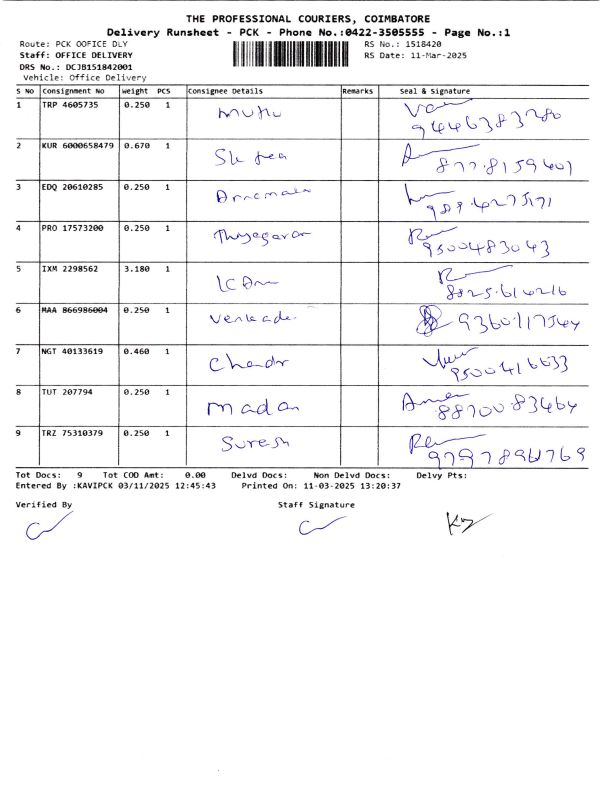 THE PROFESSIONAL COURIERS, COIMBATORE
Delivery Runsheet - PCK - Phone No.:0422-3505555 - Page No.:1
Route: PCK OOFICE DLY RS No.: 1518420
Staff: OFFICE DELIVERY RS Date: 11-Mar-2025
DRS No.: DCJB151842001
Vehicle: Office Delivery
S No Consignment No Weight PCS Consignee Details Remarks Seal & Signature
1 TRP 4605735 0.250 1 muhu
9446383286
2 KUR 6000658479 0.670 1
877.8159601
3 EDQ 20610285 0.250 1
4 PRO 17573200 0.250 1 Thyagaran
9500483043
5 IXM 2298562 3.180 1
8825.616216
6 MAA 866986004 0.250 1 9360117544
7 NGT 40133619 0.460 1 Chandr
9500416633
8 TUT 207794 0.250 1 madan
8870083464
9 TRZ 75310379 0.250 1 Suresh
9797896769
Tot Docs: 9 Tot COD Amt: 0.00 Delvd Docs: Non Delvd Docs: Delvy Pts:
Entered By :KAVIPCK 03/11/2025 12:45:43 Printed On: 11-03-2025 13:20:37
Verified By Staff Signature